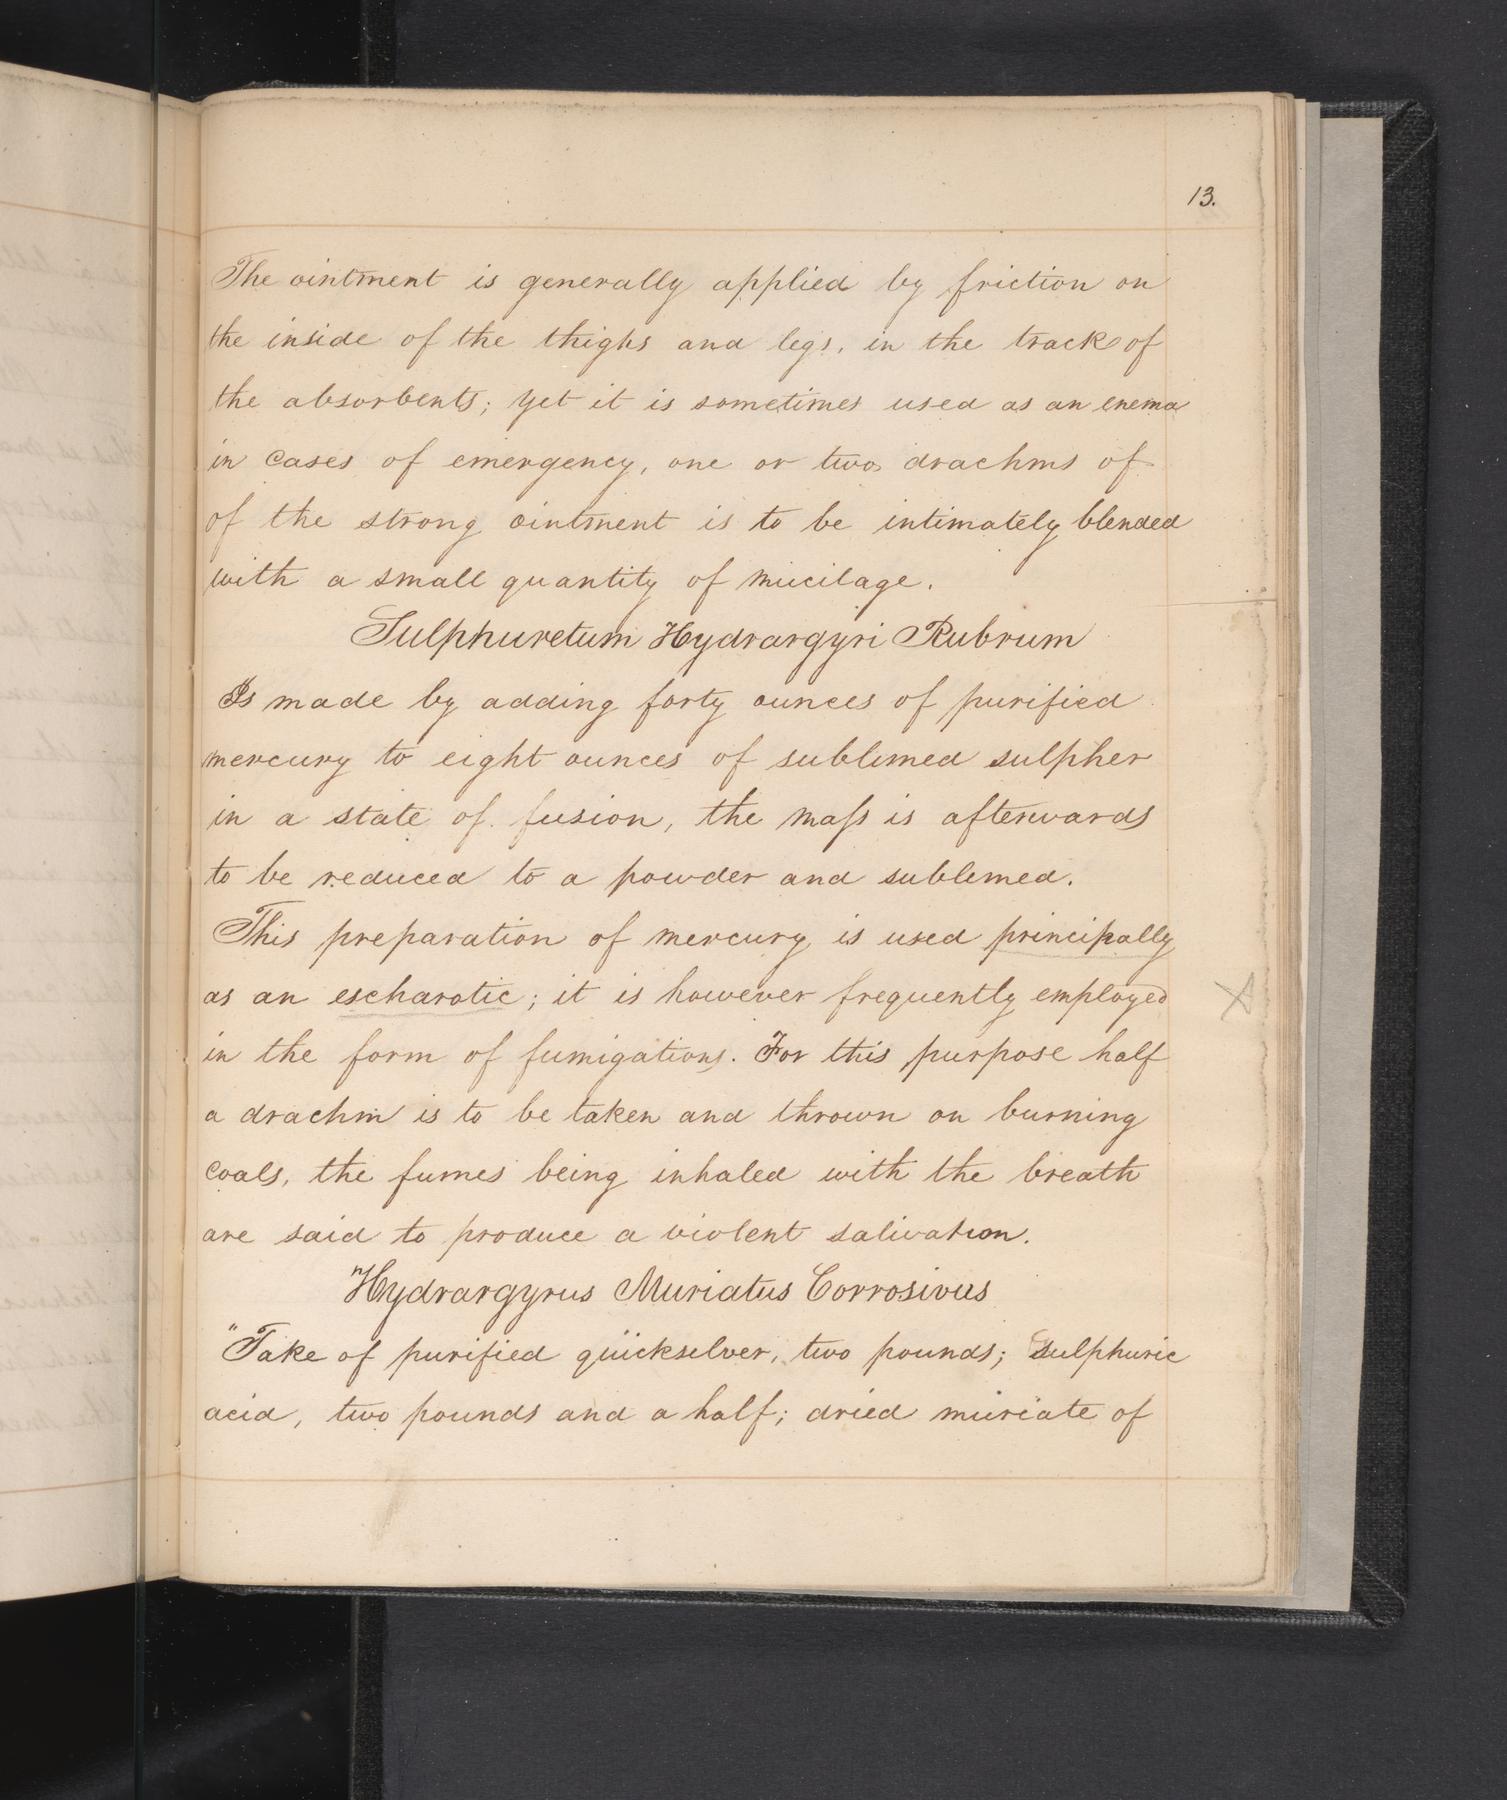 13.
The ointment is generally applied by friction on
the inside of the thighs and legs, in the track of
the absorbents; yet it is sometimes used as an enema
in cases of emergency, one or two drachms of
of the strong ointment is to be intimately blended
with a small quantity of mucilage.
Sulphuretum Hydrargyri Rubrum
Is made by adding forty ounces of purified
mercury to eight ounces of sublimed sulpher
in a state of fusion, the maſs is afterwards
to be reduced to a powder and sublimed.
This preparation of mercury is used principally
as an escharotic; it is however frequently employed
in the form of fumigations. For this purpose half
a drachm is to be taken and thrown on burning
coals, the fumes being inhaled with the breath
are said to produce a violent salivation.
Hydrargyrus Muriatus Corrosivus
"Take of purified quicksilver, two pounds; sulphuric
acid, two pounds and a half; dried muriate of